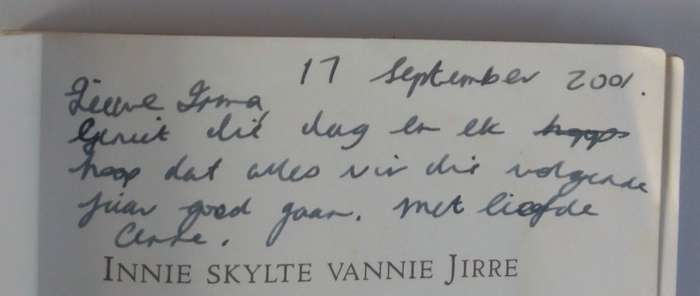 17 September 2001.
Liewe Irma,
Geniet die dag en ek hoop
hoop dat alles vir die volgende
jaar goed gaan. Met liefde
INNIE SKYLTE VANNIE JIRRE